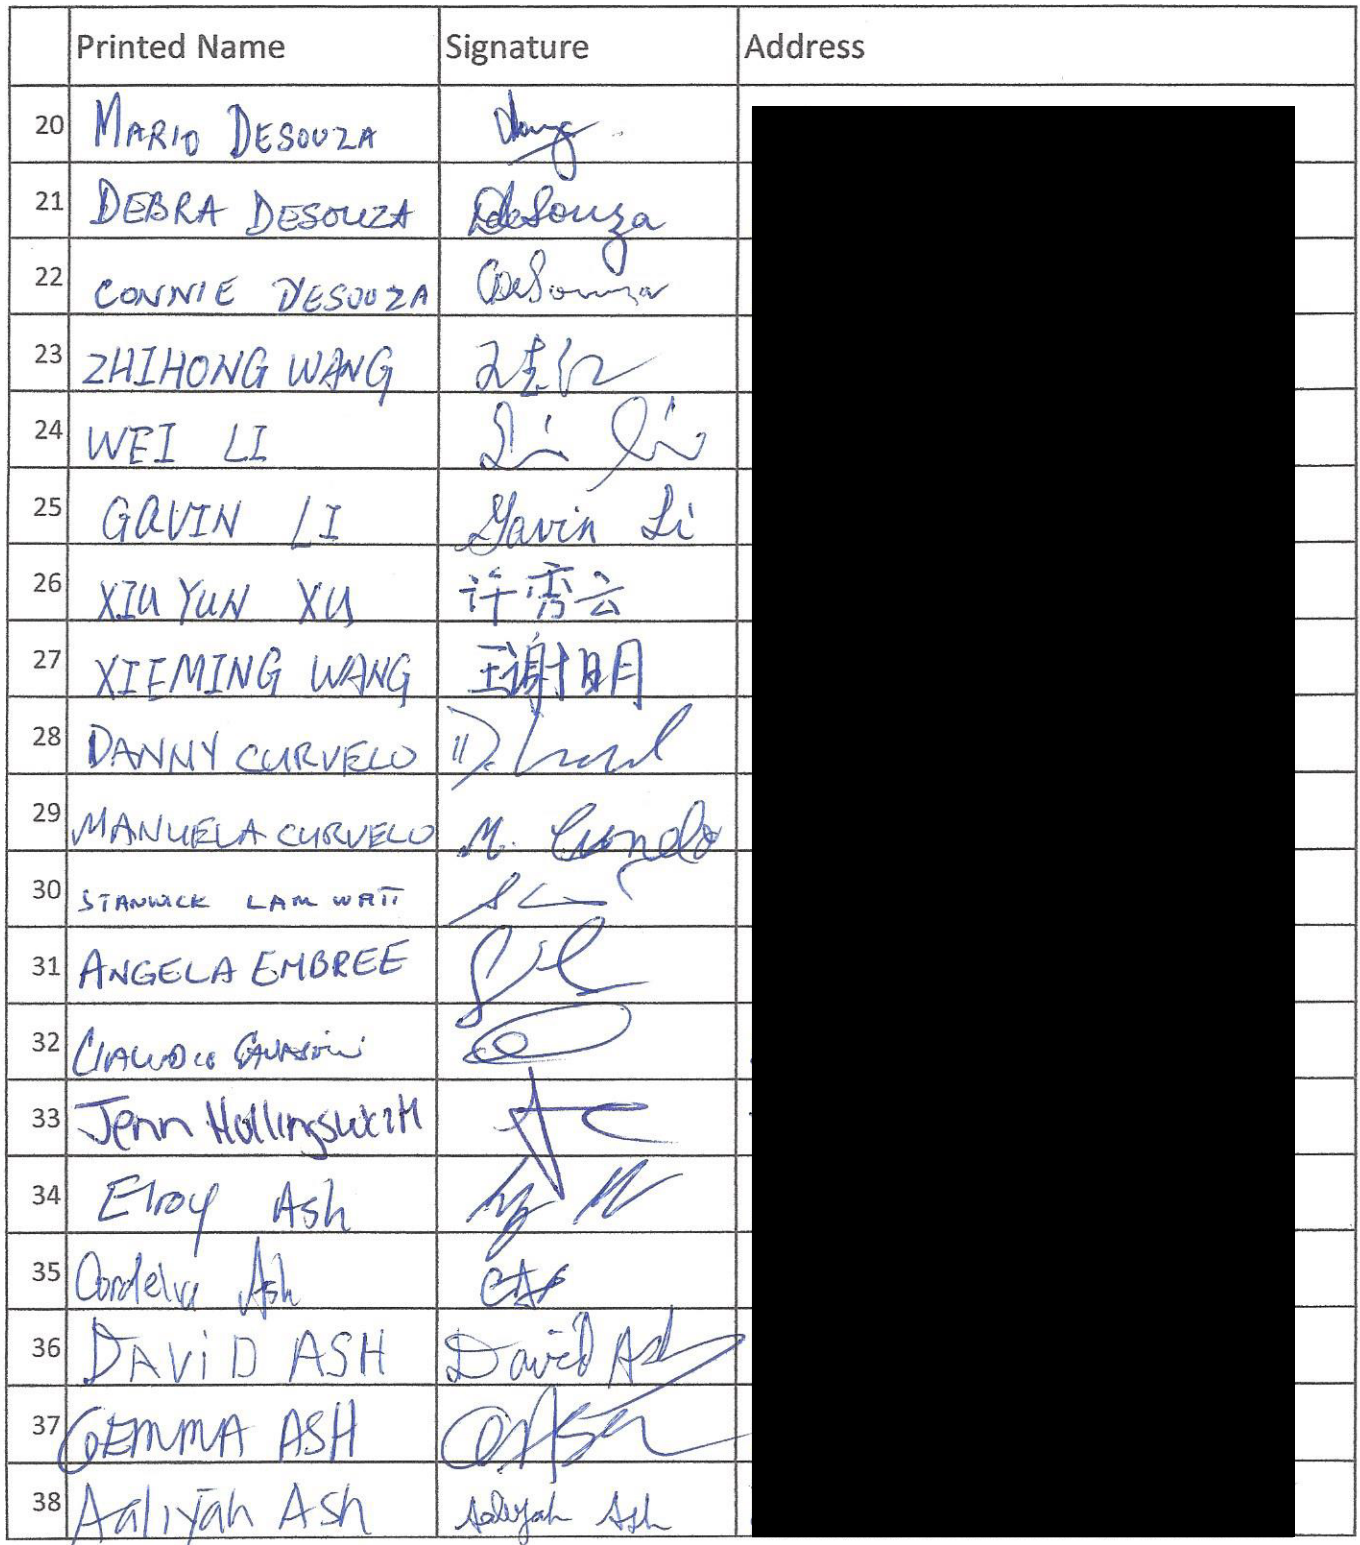 Printed Name Signature Address
20 MARIO DESOUZA
21 DEBRA DESOUZA DdeSouza
22 CONNIE DESOUZA CDeSouza
23 ZHIHONG WANG
24 WEI LI
25 GAVIN LI Gavin Li
26 XIU YUN XU 许秀云
27 XIEMING WANG 王谢明
28 DANNY CURVELO
29 MANUELA CURVELO M. Curvelo
30 STANWICK LAM WATT
31 ANGELA EMBREE
32 CLAUDIO
33 Jenn Hollingsworth
34 Elroy Ash
35 Cordelia Ash
36 DAVID ASH David Ash
37 GEMMA ASH
38 Aaliyah Ash Aaliyah Ash